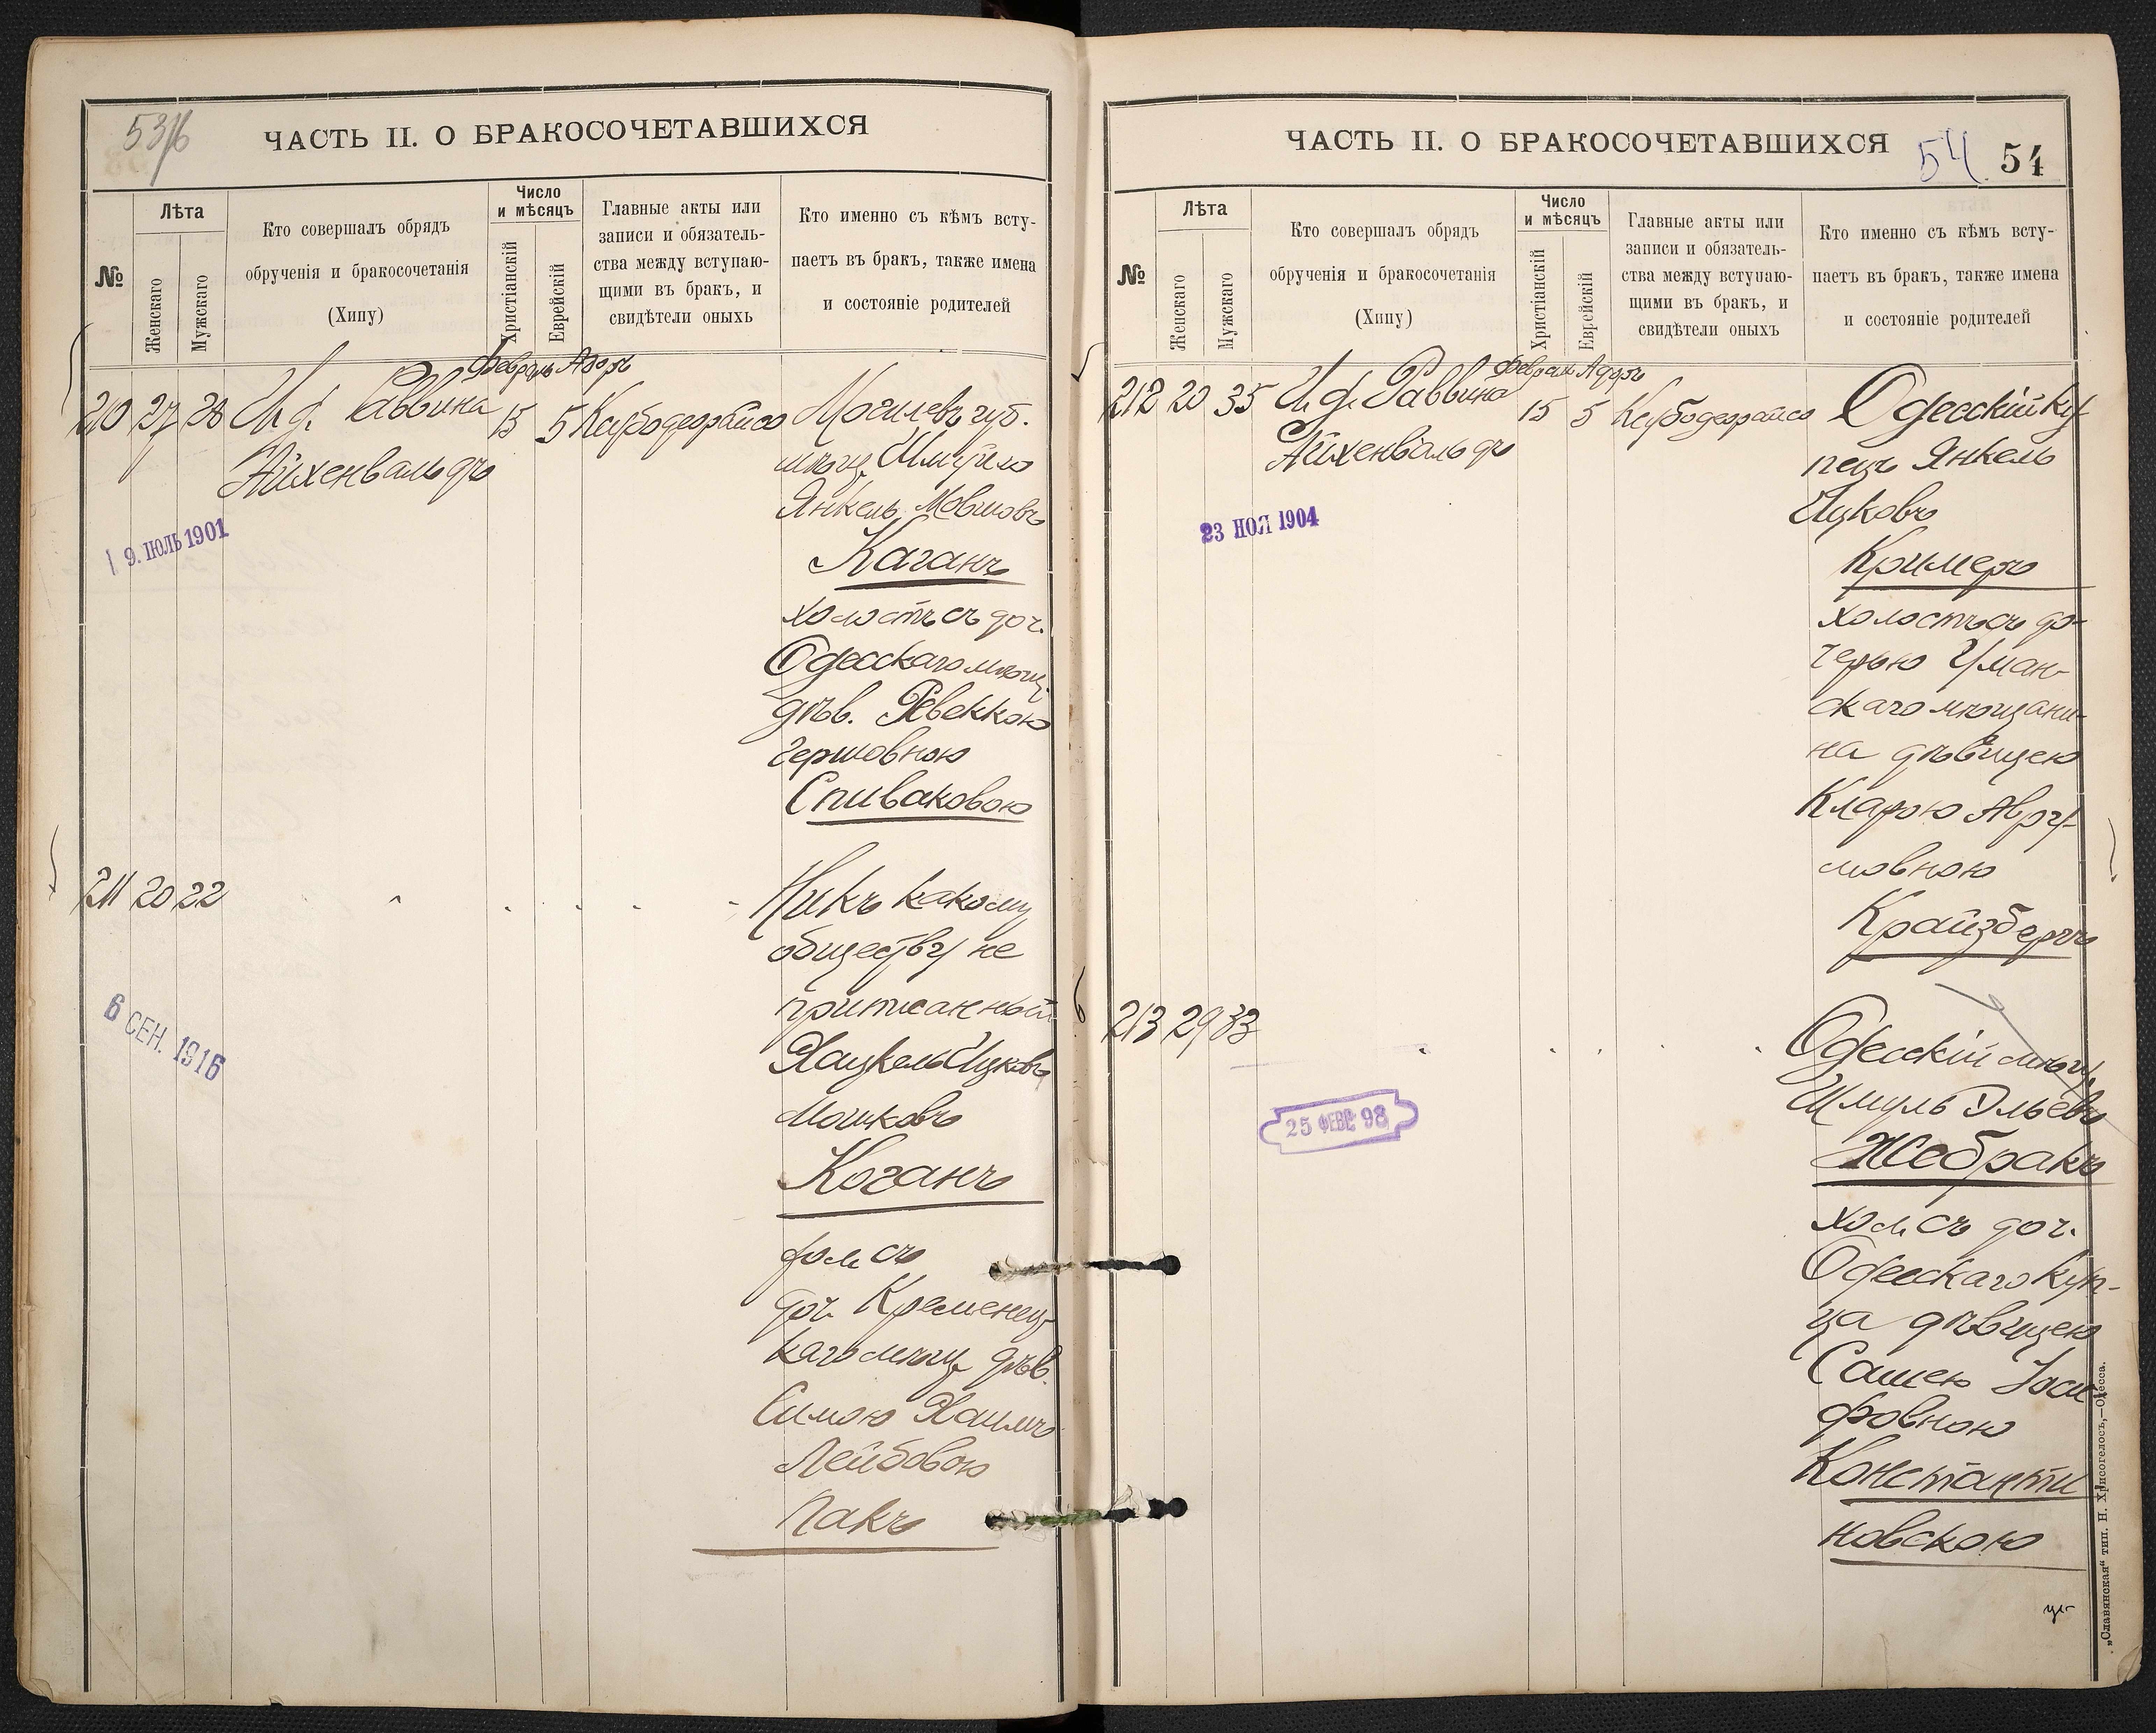 53/б
ЧАСТЬ II. О БРАКОСОЧЕТАВШИХСЯ
№
Лѣта
Женскаго
Мужскаго
Кто совершалъ обрядъ
обрученія и бракосочетанія
(Хипу)
Число
и мѣсяцъ
Христіанскій
Еврейскій
Главные акты или
записи и обязатель-
ства между вступаю-
щими въ бракъ, и
свидѣтели оныхъ
Кто именно съ кѣмъ всту-
паетъ въ бракъ, также имена
и состояніе родителей
Февраль Адоръ
210 27 28 И.д. Раввина 15 5 Могилевъ губ.
Айхенвальдъ
мѣщ. Шмуйло
Янкель Мовшовъ
Каганъ
холостъ съ доч.
Одесскаго мѣщ.
дѣв. Ревеккою
Гершовною
Спиваковою
9. ІЮЛЬ 1901
211 20 22
Ни къ какому
обществу не
приписанный
Хацкель Ицковъ
Мошковъ
Коганъ
хол. съ
доч. Кременец-
каго мѣщ. дѣв.
Симою Хаимъ
Лейбовою
Пакъ
6 СЕН. 1916
ЧАСТЬ II. О БРАКОСОЧЕТАВШИХСЯ
54 54
№
Лѣта
Женскаго
Мужскаго
Кто совершалъ обрядъ
обрученія и бракосочетанія
(Хипу)
Число
и мѣсяцъ
Христіанскій
Еврейскій
Главные акты или
записи и обязатель-
ства между вступаю-
щими въ бракъ, и
свидѣтели оныхъ
Кто именно съ кѣмъ всту-
паетъ въ бракъ, также имена
и состояніе родителей
Февраль Адоръ
212 20 35 И.д. Раввина 15 5 Одесскій ку
Айхенвальдъ
пецъ Янкель
Ицковъ
Кримеръ
холостъ съ до-
черью Уман-
скаго мѣщани-
на дѣвицею
Кларою Авру-
мовною
Крайзбергъ
23 НОЯ 1904
213 29 33
Одесскій мѣщ.
Шмуль Эльевъ
Жебракъ
хол. съ доч.
Одесскаго куп-
ца дѣвицею
Сашею Іоси
фовною
Константи
новскою
25 ФЕВР. 98
„Славянская“ тип. Н. Хрисогелосъ,—Одесса.